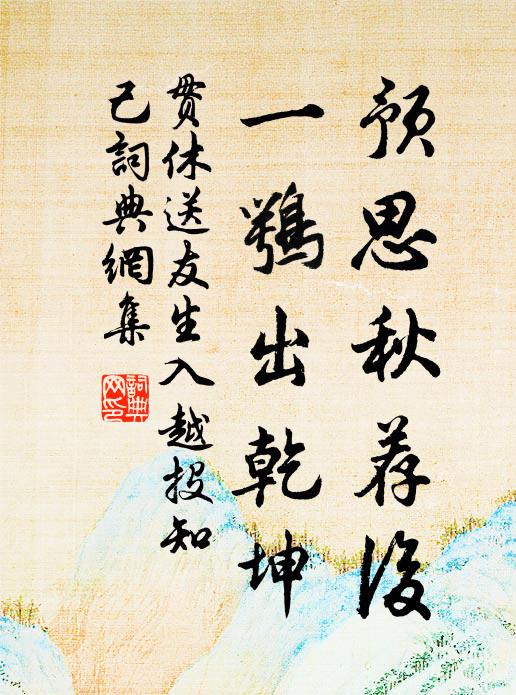 预思秋荐后
一鹗出乾坤
贯休送友生入越投知
己词典網集
詞典网印